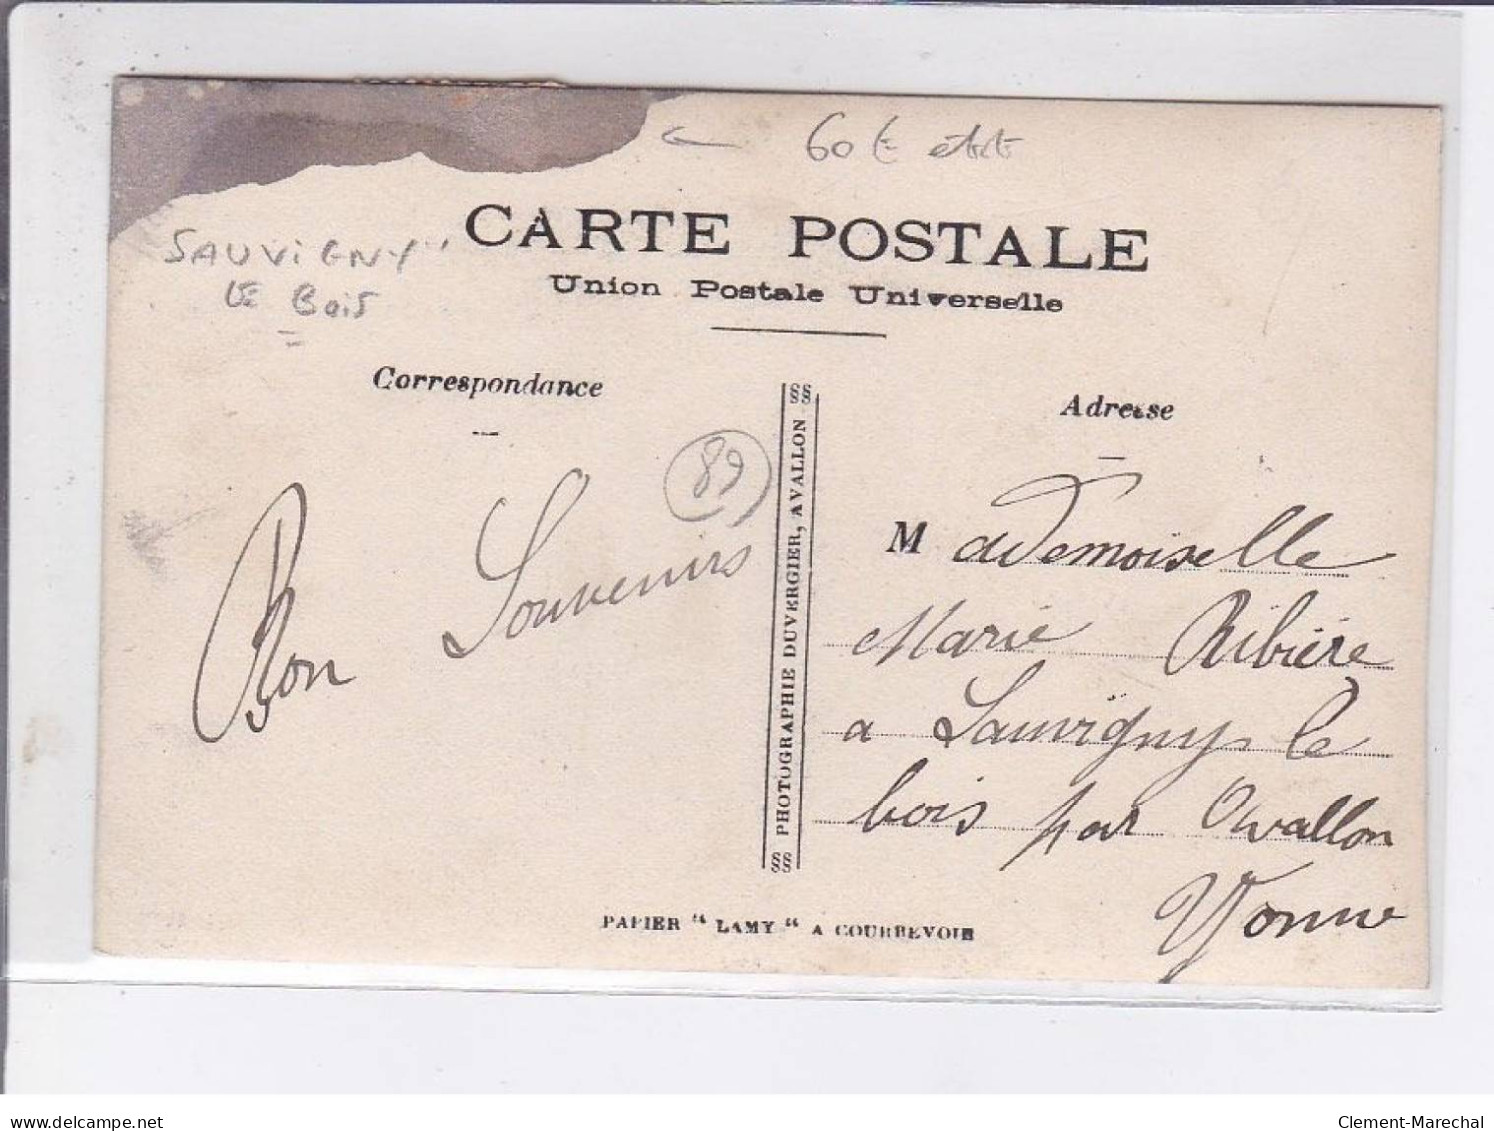 ← 60 € état
CARTE POSTALE
SAUVIGNY
le Bois
Union Postale Universelle
Correspondance
Adresse
89
Bon Souvenirs
§§ PHOTOGRAPHIE DUVERGIER, AVALLON §§
Mademoiselle
Marie Ribière
a Sauvigny le
bois par Avallon
Yonne
PAPIER "LAMY" A COURBEVOIE
www.delcampe.net
Clement-Marechal